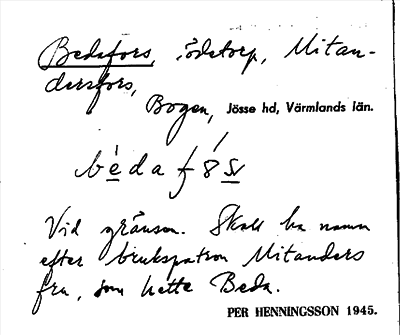 Bedafors, ödetorp, Mitan-
dersfors,
Bogen, Jösse hd, Värmlands län.
béda f8sv
Vid gränsen. Skall ha namn
efter brukspatron Mitanders
fru, som hette Beda.
PER HENNINGSSON 1945.